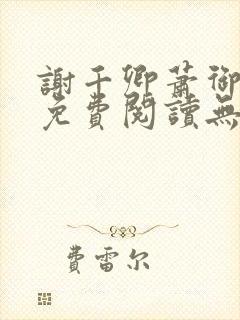 謝千卿蕭御
免費閱讀無
費雷尔